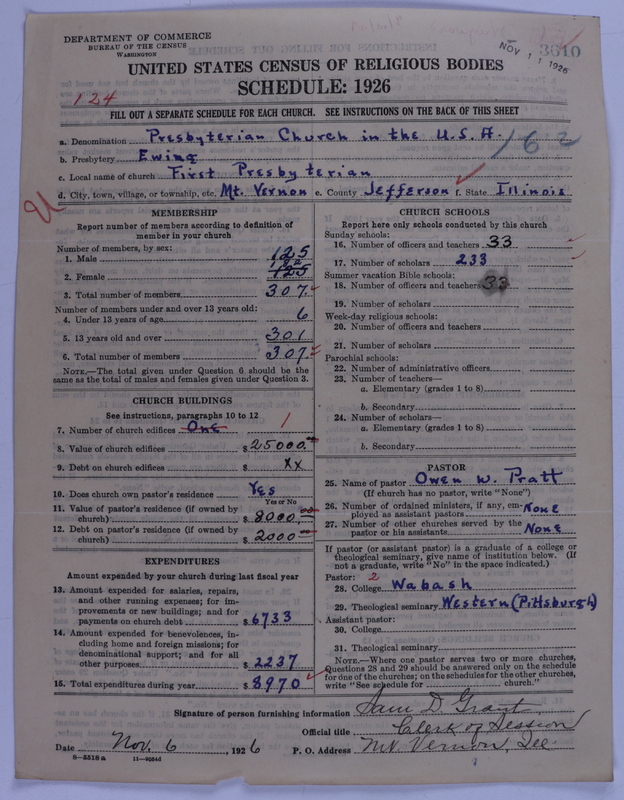 DEPARTMENT OF COMMERCE
BUREAU OF THE CENSUS
WASHINGTON
NOV 11 1926
3610
UNITED STATES CENSUS OF RELIGIOUS BODIES
SCHEDULE: 1926
124
FILL OUT A SEPARATE SCHEDULE FOR EACH CHURCH. SEE INSTRUCTIONS ON THE BACK OF THIS SHEET
a. Denomination Presbyterian Church in the U.S.A. 162
b. Presbytery Ewing
c. Local name of church First Presbyterian
d. City, town, village, or township, etc. Mt. Vernon e. County Jefferson f. State Illinois
MEMBERSHIP
Report number of members according to definition of
member in your church
Number of members, by sex:
1. Male 125
2. Female 182 125
3. Total number of members 307
Number of members under and over 13 years old:
4. Under 13 years of age 6
5. 13 years old and over 301
6. Total number of members 307
NOTE.—The total given under Question 6 should be the
same as the total of males and females given under Question 3.
CHURCH BUILDINGS
See instructions, paragraphs 10 to 12
7. Number of church edifices One 1
8. Value of church edifices $ 25000.
9. Debt on church edifices $ xx
10. Does church own pastor's residence Yes
Yes or No
11. Value of pastor's residence (if owned by
church) $ 8000.00
12. Debt on pastor's residence (if owned by
church) $ 2000
EXPENDITURES
Amount expended by your church during last fiscal year
13. Amount expended for salaries, repairs,
and other running expenses; for im-
provements or new buildings; and for
payments on church debt $ 6733
14. Amount expended for benevolences, in-
cluding home and foreign missions; for
denominational support; and for all
other purposes $ 2237
15. Total expenditures during year $ 8970
CHURCH SCHOOLS
Report here only schools conducted by this church
Sunday schools:
16. Number of officers and teachers 33
17. Number of scholars 233
Summer vacation Bible schools:
18. Number of officers and teachers 33
19. Number of scholars
Week-day religious schools:
20. Number of officers and teachers
21. Number of scholars
Parochial schools:
22. Number of administrative officers
23. Number of teachers—
a. Elementary (grades 1 to 8)
b. Secondary
24. Number of scholars—
a. Elementary (grades 1 to 8)
b. Secondary
PASTOR
25. Name of pastor Owen W. Pratt
(If church has no pastor, write "None")
26. Number of ordained ministers, if any, em-
ployed as assistant pastors None
27. Number of other churches served by the
pastor or his assistant None
If pastor (or assistant pastor) is a graduate of a college or
theological seminary, give name of institution below. (If
not a graduate, write "No" in the space indicated.)
Pastor: 2
28. College Wabash
29. Theological seminary Western (Pittsburgh)
Assistant pastor:
30. College
31. Theological seminary
NOTE.—Where one pastor serves two or more churches,
Questions 28 and 29 should be answered only on the schedule
for one of the churches; on the schedules for the other churches,
write "See schedule for church."
Signature of person furnishing information Sam D Grant
Official title Clerk of Session
Date Nov. 6, 1926 P. O. Address Mt. Vernon, Ill.
8—5518 a 11—9054d